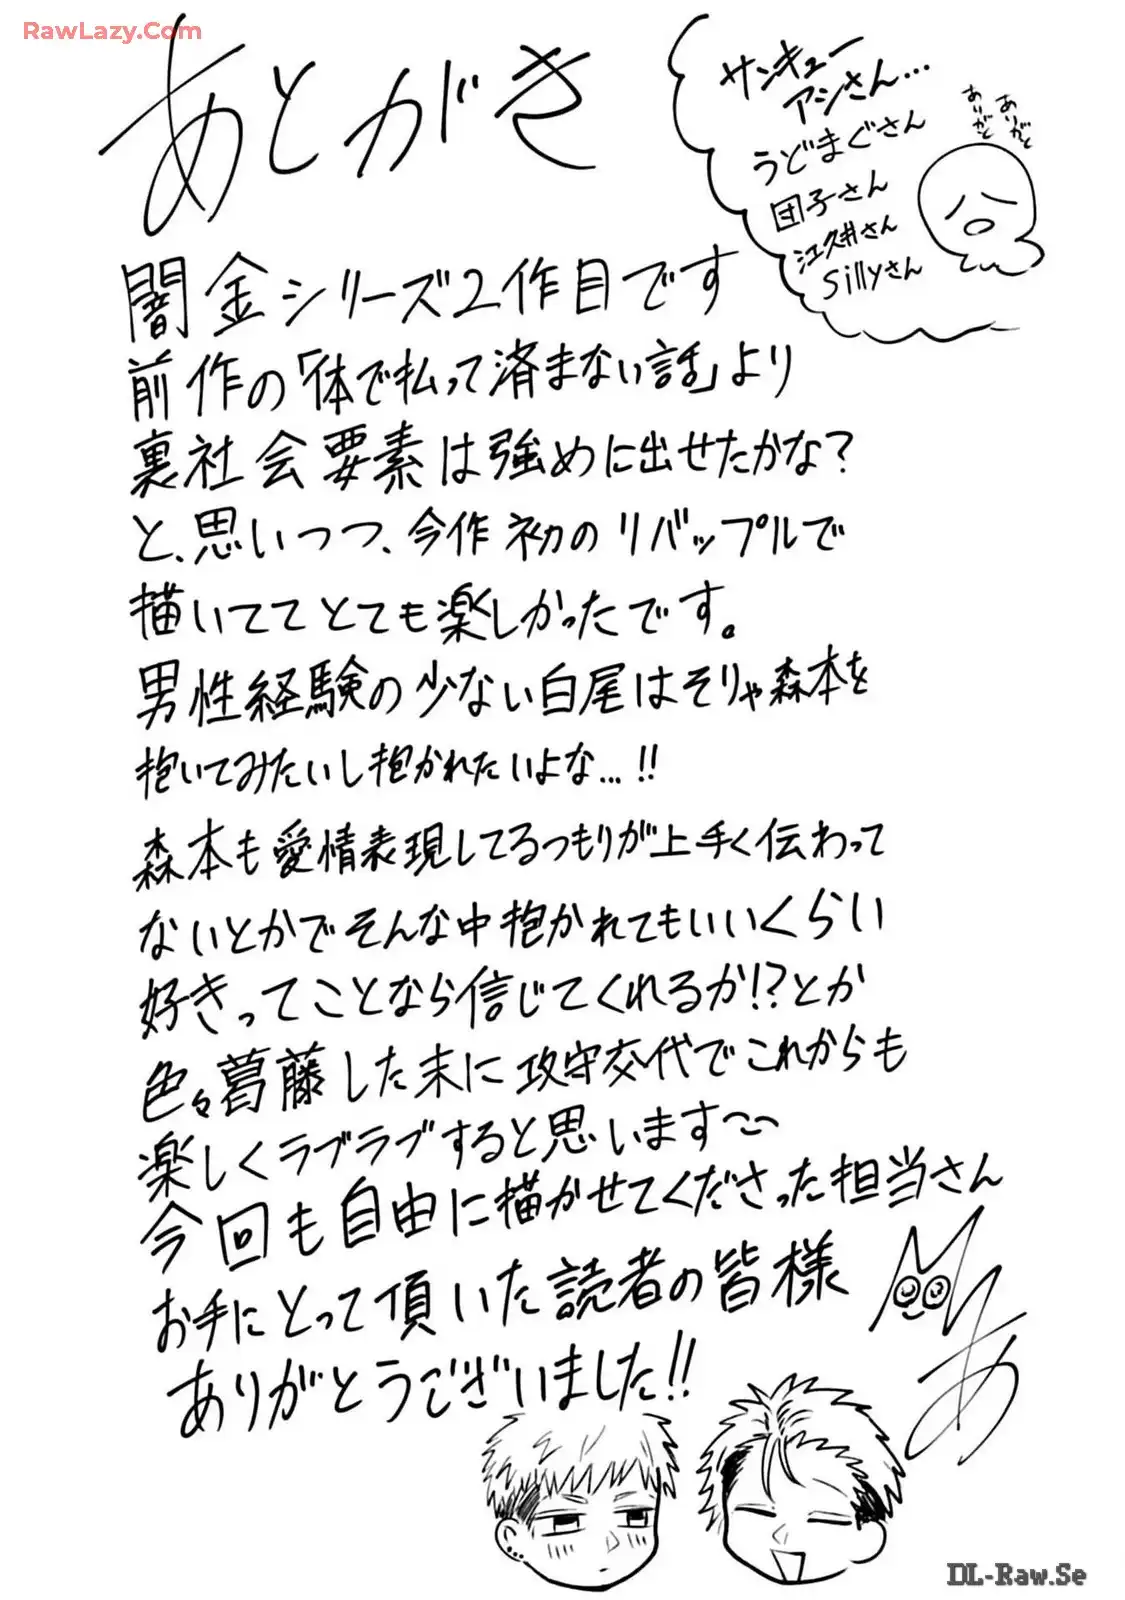 RawLazy.Com
あとがき
サンキュー
アシさん…
うどまぐさん
団子さん
江久井さん
Sillyさん
ありがと
ありがと
闇金シリーズ2作目です
前作の「体で払って済まない話」より
裏社会要素は強めに出せたかな?
と、思いつつ、今作初のリバップルで
描いててとても楽しかったです。
男性経験の少ない白尾はそりゃ森本を
抱いてみたいし抱かれたいよな…!!
森本も愛情表現してるつもりが上手く伝わって
ないとかでそんな中抱かれてもいいくらい
好きってことなら信じてくれるか!?とか
色々葛藤した末に攻守交代でこれからも
楽しくラブラブすると思います〜
今回も自由に描かせてくださった担当さん
お手にとって頂いた読者の皆様
ありがとうございました!!
あ
DL-Raw.Se